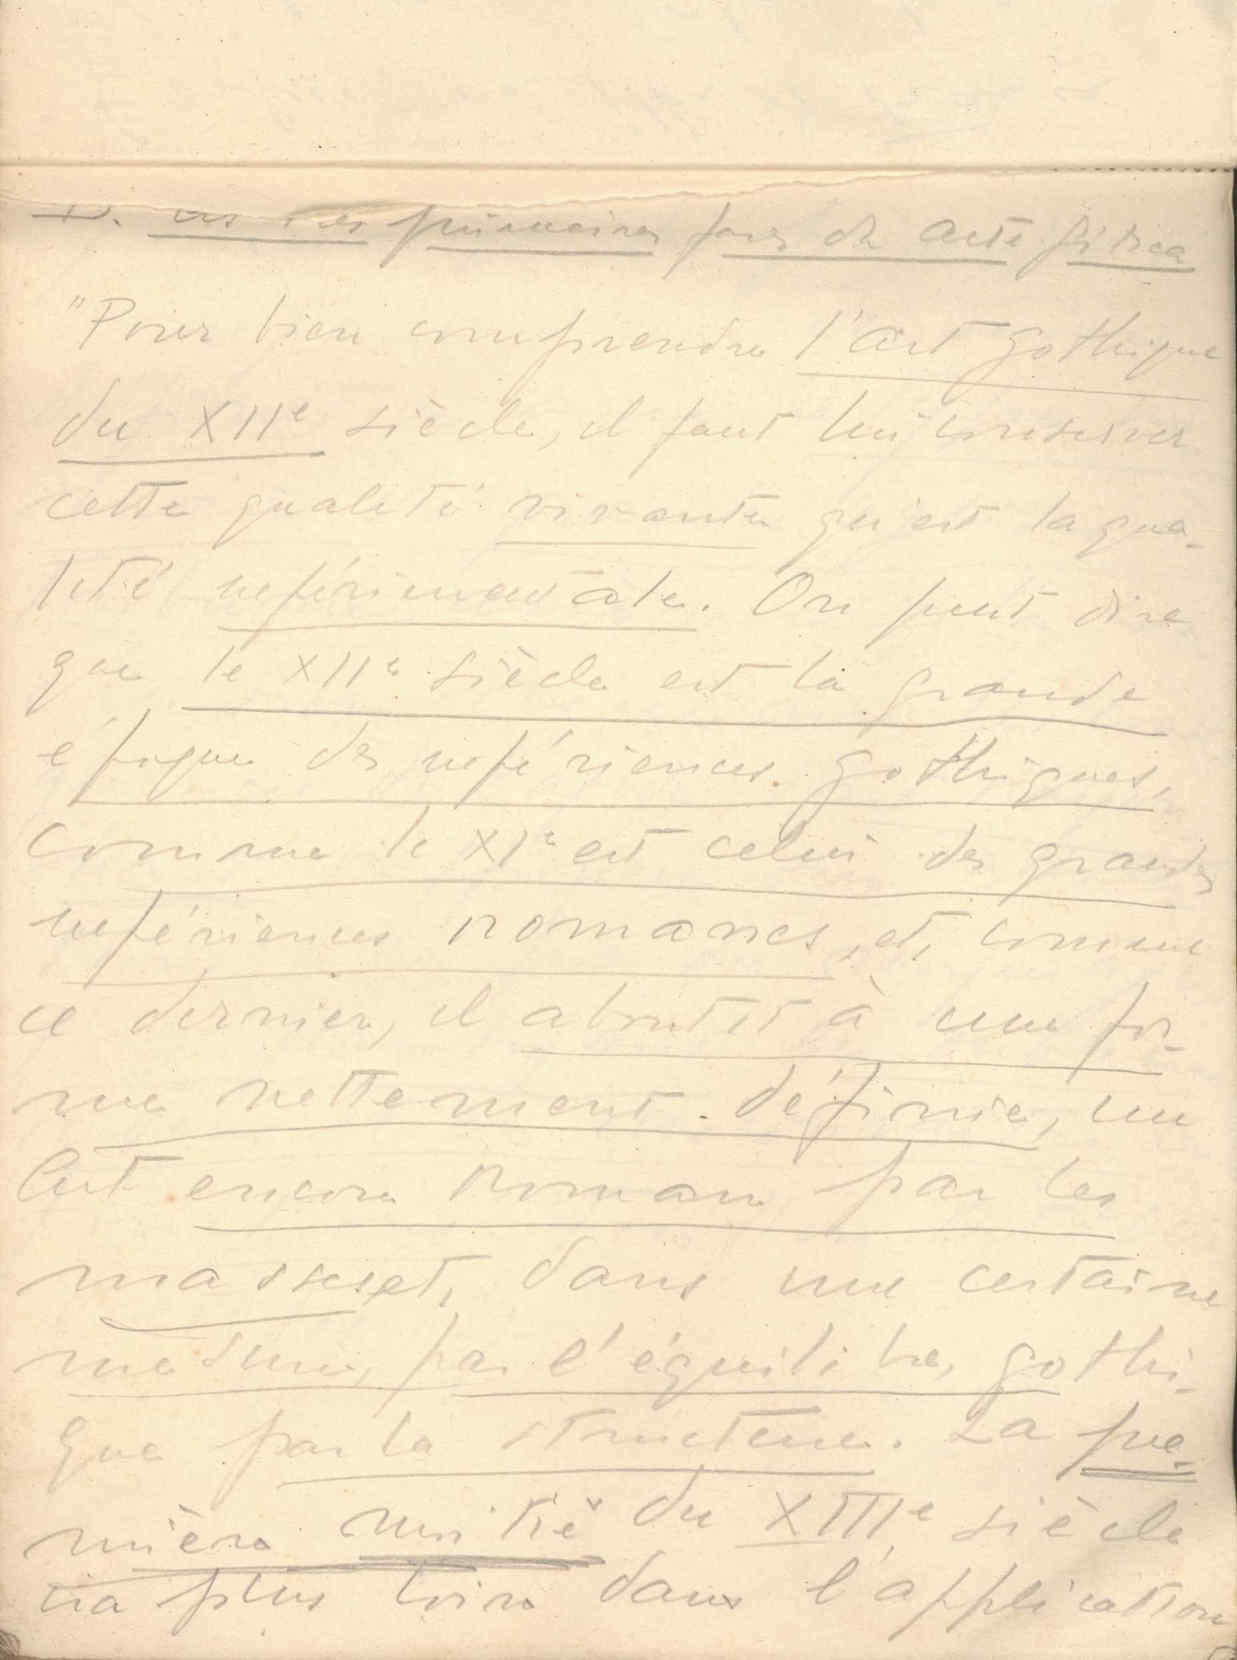 primeiras fases da arte gótica
"Pour bien comprendre l'art gothique
du XIIe siècle, il faut lui conserver
cette qualité vivante qu'est la qua-
lité expérimentale. On peut dire
que le XIIe siècle est la grande
époque des expériences gothiques,
comme le XIe est celui des grandes
expériences romanes, et, comme
ce dernier, il aboutit à une for-
me nettement définie, un
art encore roman par les
masses et, dans une certaine
mesure, par l'équilibre, gothi-
que par la structure. La pre-
mière moitié du XIIIe siècle
ira plus loin dans l'application